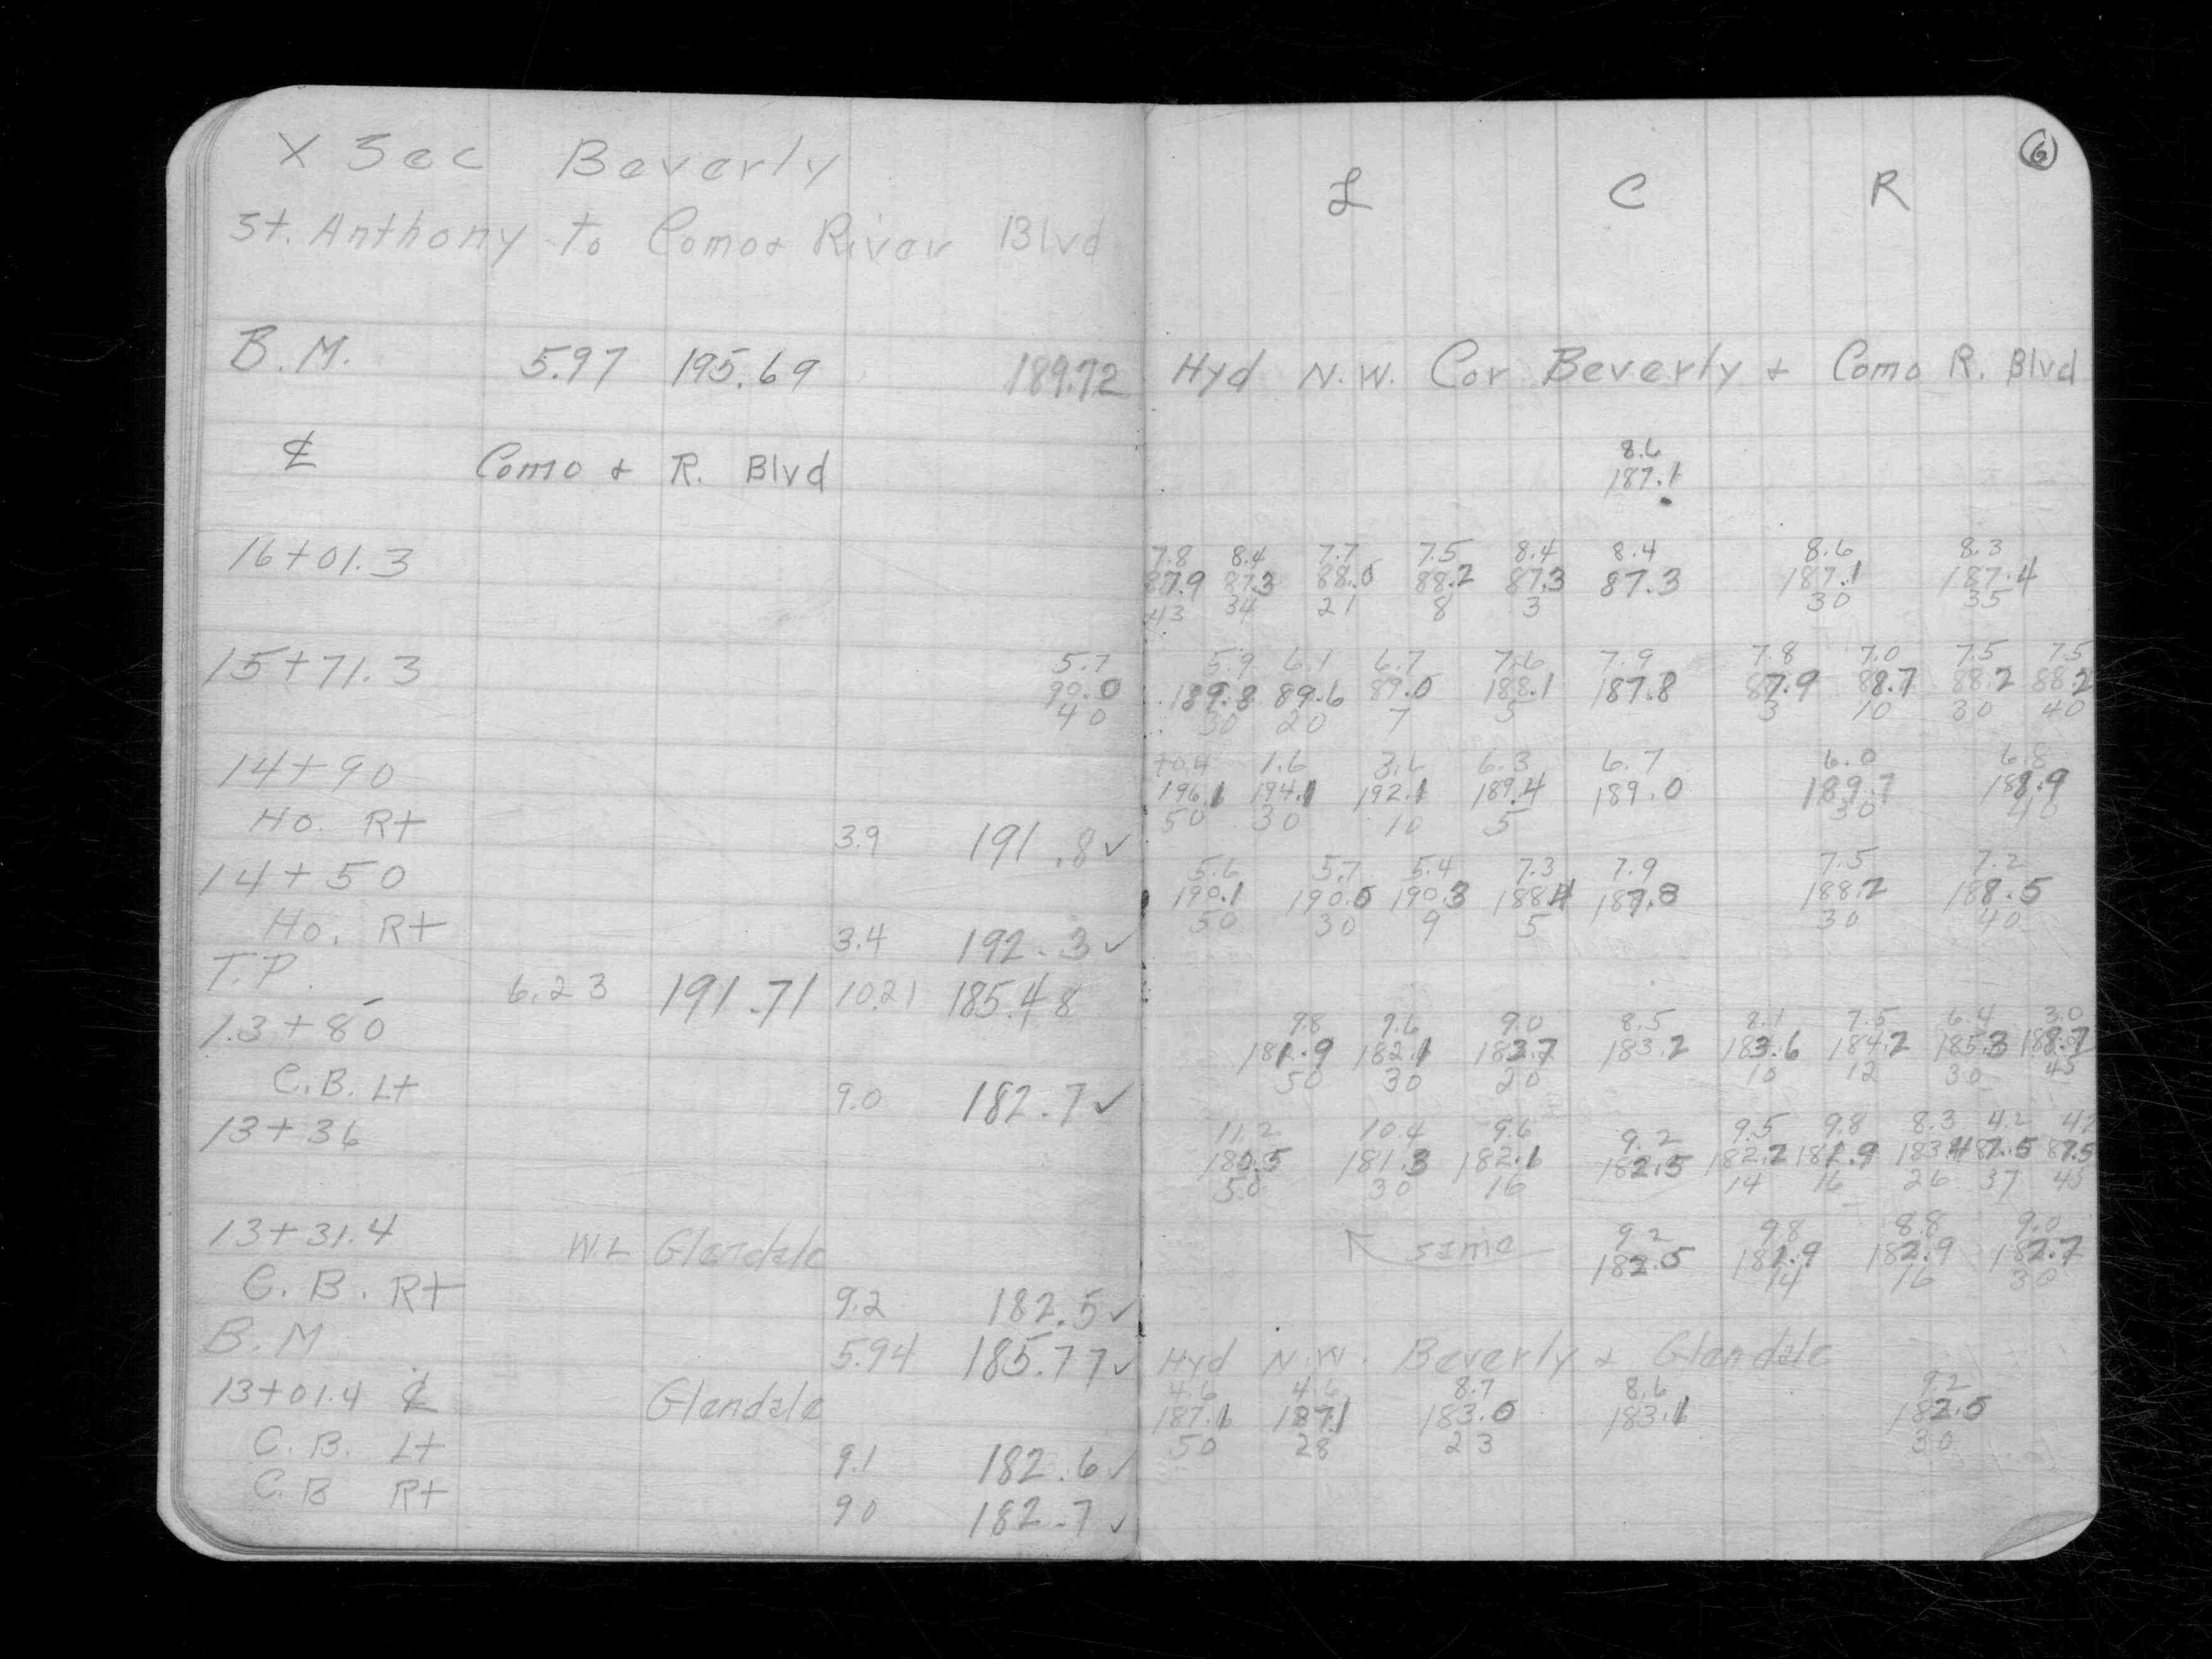 X Sec Beverly
St. Anthony to Como & River Blvd
6
L C R
B.M. 5.97 195.69 189.72 Hyd N.W. Cor Beverly & Como R. Blvd
8.6
℄ Como & R. Blvd 187.1
7.8 8.4 7.7 7.5 8.4 8.4 8.6 8.3
16+01.3 87.9 87.3 88.0 88.2 87.3 87.3 187.1 187.4
43 34 21 8 3 30 35
5.7 5.9 6.1 6.7 7.6 7.9 7.8 7.0 7.5 7.5
15+71.3 90.0 189.8 89.6 89.0 188.1 187.8 87.9 88.7 88.2 88.2
40 30 20 7 5 3 10 30 40
+0.4 1.6 3.6 6.3 6.7 6.0 6.8
14+90 196.1 194.1 192.1 189.4 189.0 189.7 188.9
50 30 10 5 30 40
Ho. Rt 3.9 191.8 ✓
5.6 5.7 5.4 7.3 7.9 7.5 7.2
14+50 190.1 190.0 190.3 188.4 187.8 188.2 188.5
50 30 9 5 30 40
Ho. Rt 3.4 192.3 ✓
T.P. 6.23 191.71 10.21 185.48
9.8 9.6 9.0 8.5 8.1 7.5 6.4 3.0
13+80 181.9 182.1 182.7 183.2 183.6 184.2 185.3 188.7
50 30 20 10 12 30 45
C.B. Lt 9.0 182.7 ✓
11.2 10.4 9.6 9.2 9.5 9.8 8.3 4.2 4.2
13+36 180.5 181.3 182.1 182.5 182.2 181.9 183.4 87.5 87.5
50 30 16 14 16 26 37 45
9.2 9.8 8.8 9.0
13+31.4 W.L Glendale same 182.5 181.9 182.9 182.7
14 16 30
C.B. Rt 9.2 182.5 ✓
B.M 5.94 185.77 ✓ Hyd N.W. Beverly & Glendale
4.6 4.6 8.7 8.6 9.2
13+01.4 ℄ Glendale 187.1 187.1 183.0 183.1 182.5
50 28 23 30
C.B. Lt 9.1 182.6 ✓
C.B Rt 9.0 182.7 ✓